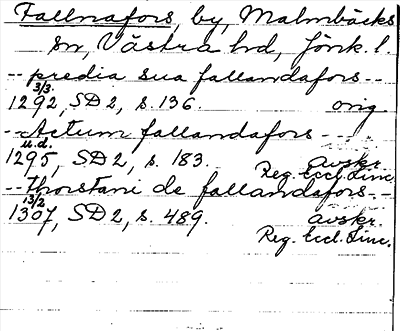 Fallnafors, by, Malmbäcks
sn, Västra hd, Jönk. l.
-- predia sua fallandafors --
3/3
1292, SD 2, s. 136. orig
-- Actum fallandafors ---
u.d.
1295, SD 2, s. 183. avskr.
Reg. Eccl. Linc.
-- thorstani de fallandafors --
13/2
1307, SD 2, s. 489. avskr.
Reg. Eccl. Linc.